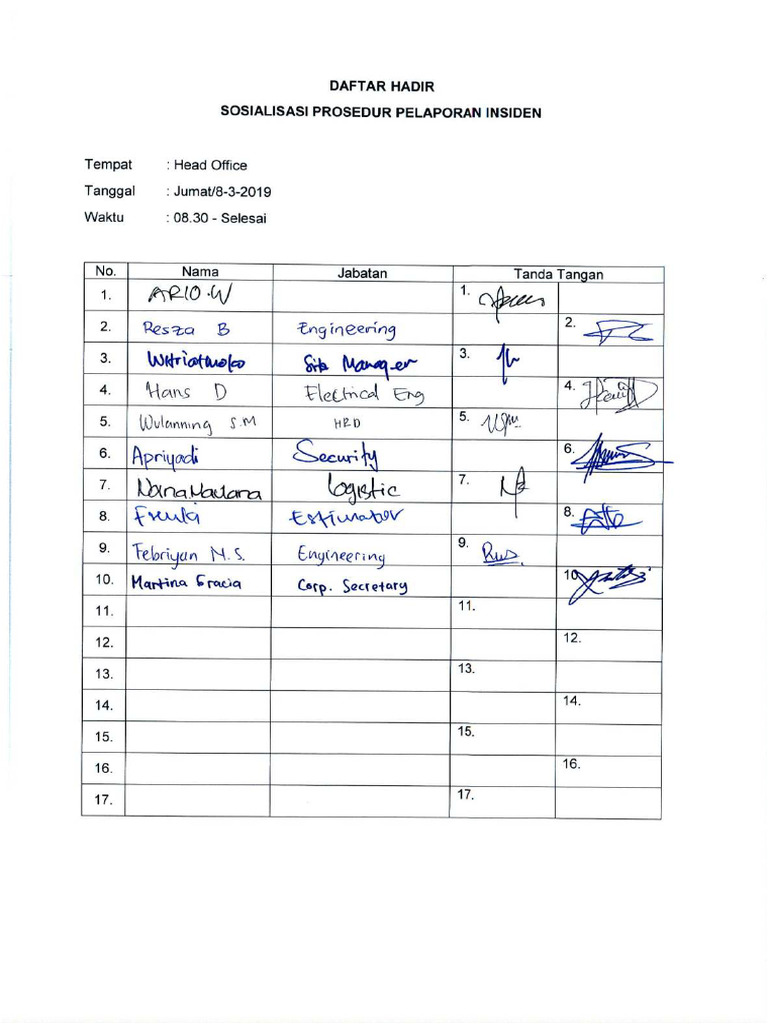 DAFTAR HADIR
SOSIALISASI PROSEDUR PELAPORAN INSIDEN
Tempat : Head Office
Tanggal : Jumat/8-3-2019
Waktu : 08.30 - Selesai
No. Nama Jabatan Tanda Tangan
1. ARIO.W 1.
2. Resza B Engineering 2.
3. Site Manager 3.
4. Hans D Electrical Eng 4.
5. Wulanning S.M HRD 5.
6. Apriyadi Security 6.
7. Logistic 7.
8. Estimator 8.
9. Febriyan N.S. Engineering 9.
10. Martina Gracia Corp. Secretary 10.
11. 11.
12. 12.
13. 13.
14. 14.
15. 15.
16. 16.
17. 17.